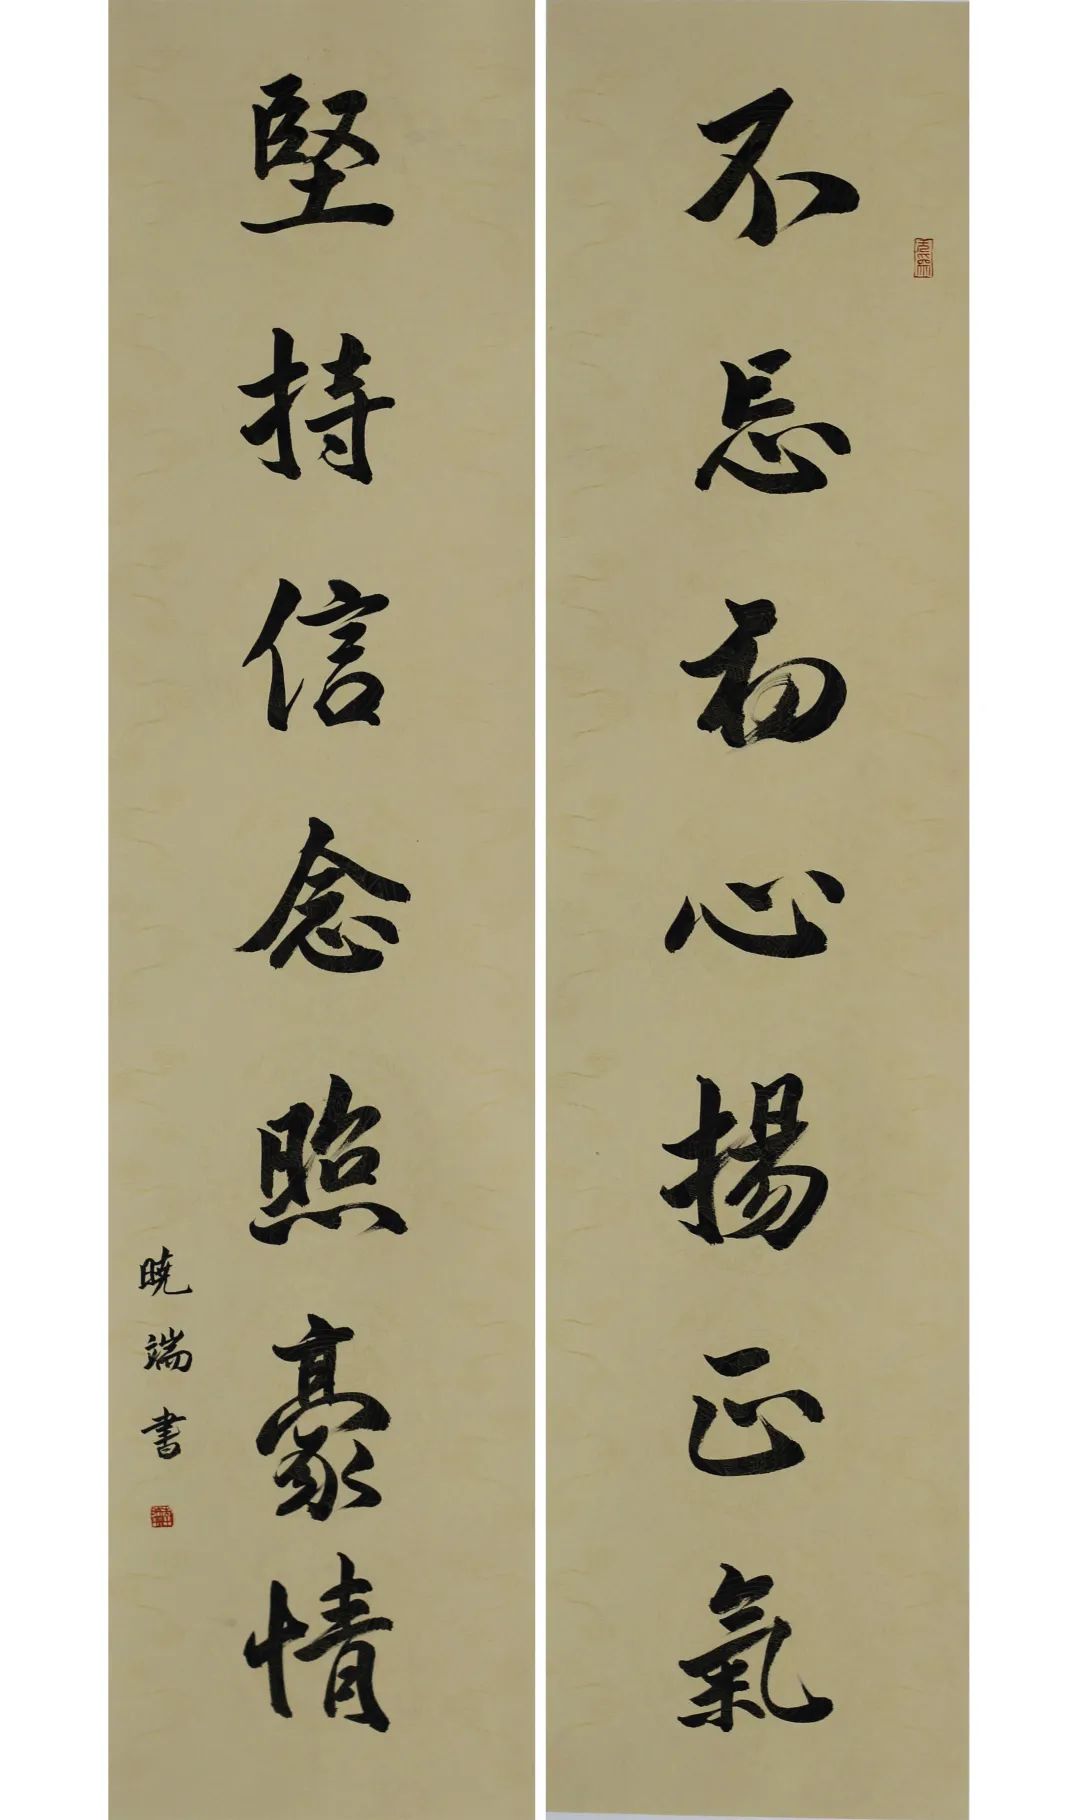 不忘初心揚正氣
堅持信念照豪情
曉端书